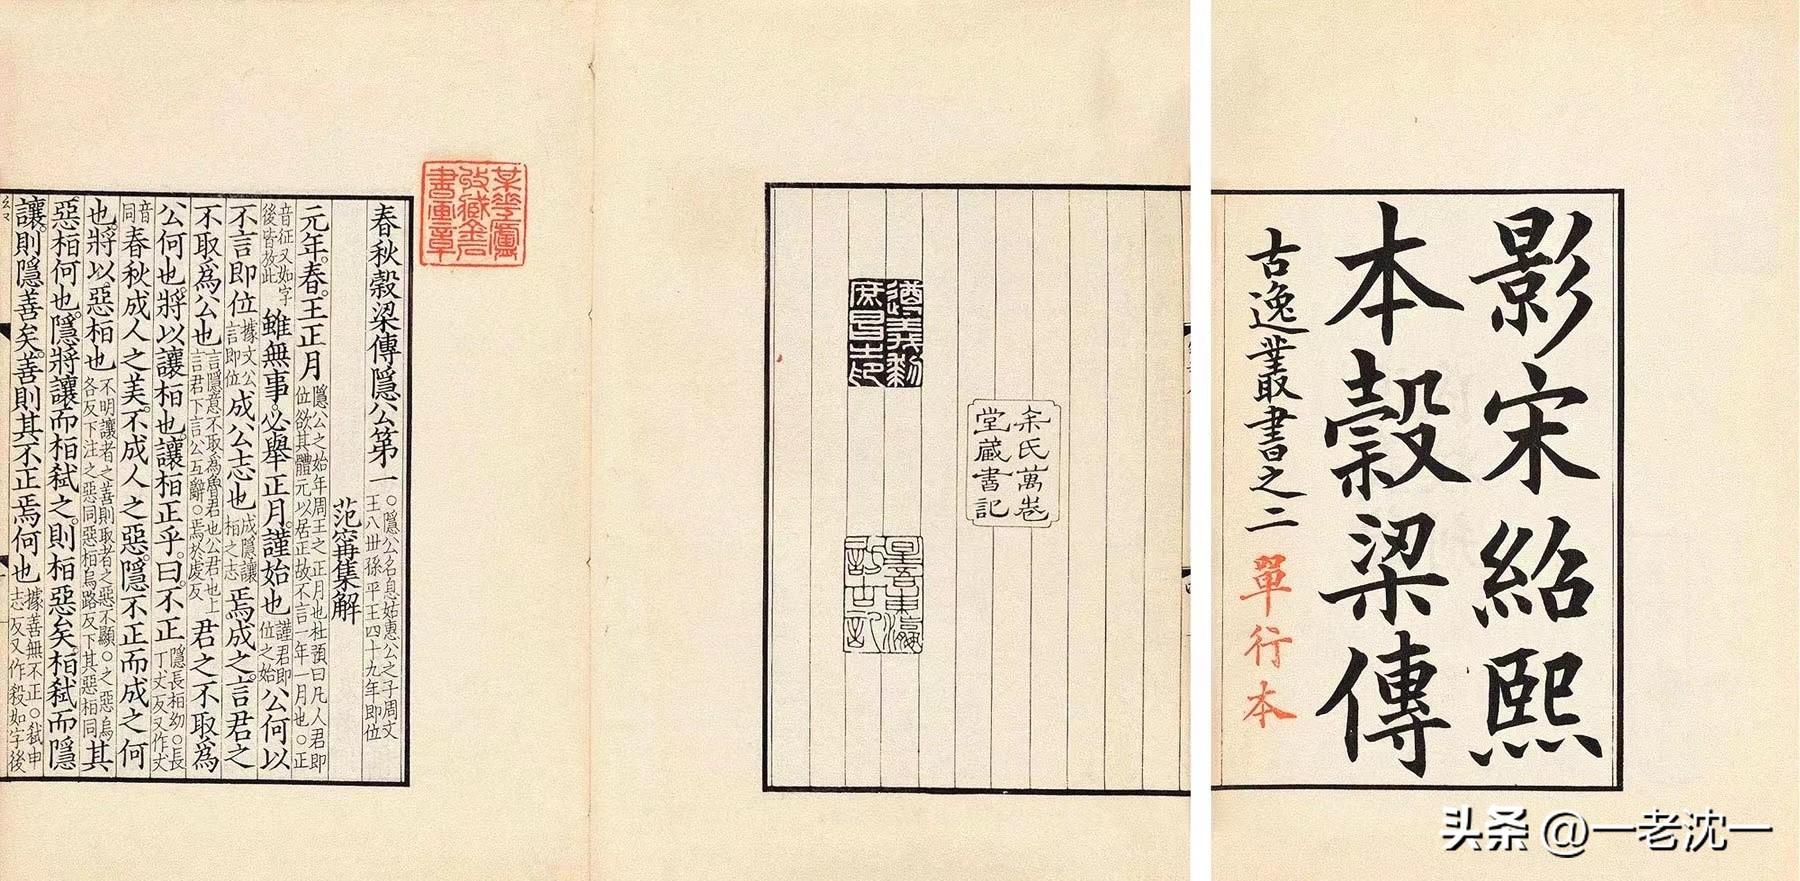 影宋紹熙
本穀梁傳
古逸叢書之二
單行本
遵義黎
庶昌之印
余氏萬卷
堂藏書記
星吾東瀛
訪古記
春秋穀梁傳隱公第一 ○隱公名息姑惠公之子周文王八世孫平王四十九年即位
范甯集解
元年。春。王正月 隱公之始年周王之正月也杜預曰凡人君即位欲其體元以居正故不言一年一月也。○正
音征又如字後皆放此 雖無事。必舉正月。謹始也 謹君即位之始 公何以
不言即位 據文公言即位 成公志也 成隱讓桓之志 焉成之。言君之
不取爲公也 言隱意不取為魯君也公君也上言君下言公互辭○焉於虔反 君之不取爲
公何也。將以讓桓也。讓桓正乎。曰。不正 隱長桓幼○長丁丈反又作丈
音同 春秋成人之美。不成人之惡。隱不正而成之何
也。將以惡桓也 不明讓者之善則取者之惡不顯○之惡烏各反下注之惡同惡桓烏路反下其惡桓同 其
惡桓何也。隱將讓而桓弒之。則桓惡矣。桓弒而隱
讓。則隱善矣。善則其不正焉何也 據善無不正。○弒申志反又作殺如字後
头条 @一老沈一